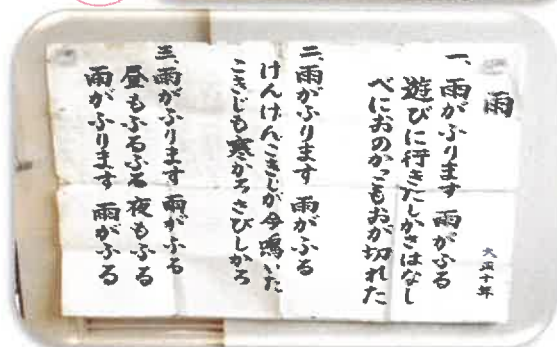 雨
大正十年
一、雨がふります 雨がふる
遊びに行きたしかさはなし
べにおのかっこもおが切れた
二、雨がふります 雨がふる
けんけんこきじが今鳴いた
こきじも寒かろさびしかろ
三、雨がふります 雨がふる
昼もふるふる 夜もふる
雨がふります 雨がふる